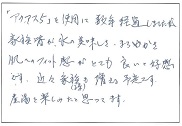 「アイアス5」を使用して数年経過しましたが
家族皆が、水の美味しさ、まろやかさ
肌へのフィット感がとても良いと好感
です。近々家族が増える予定です。
産湯を楽しみたと思ってます。